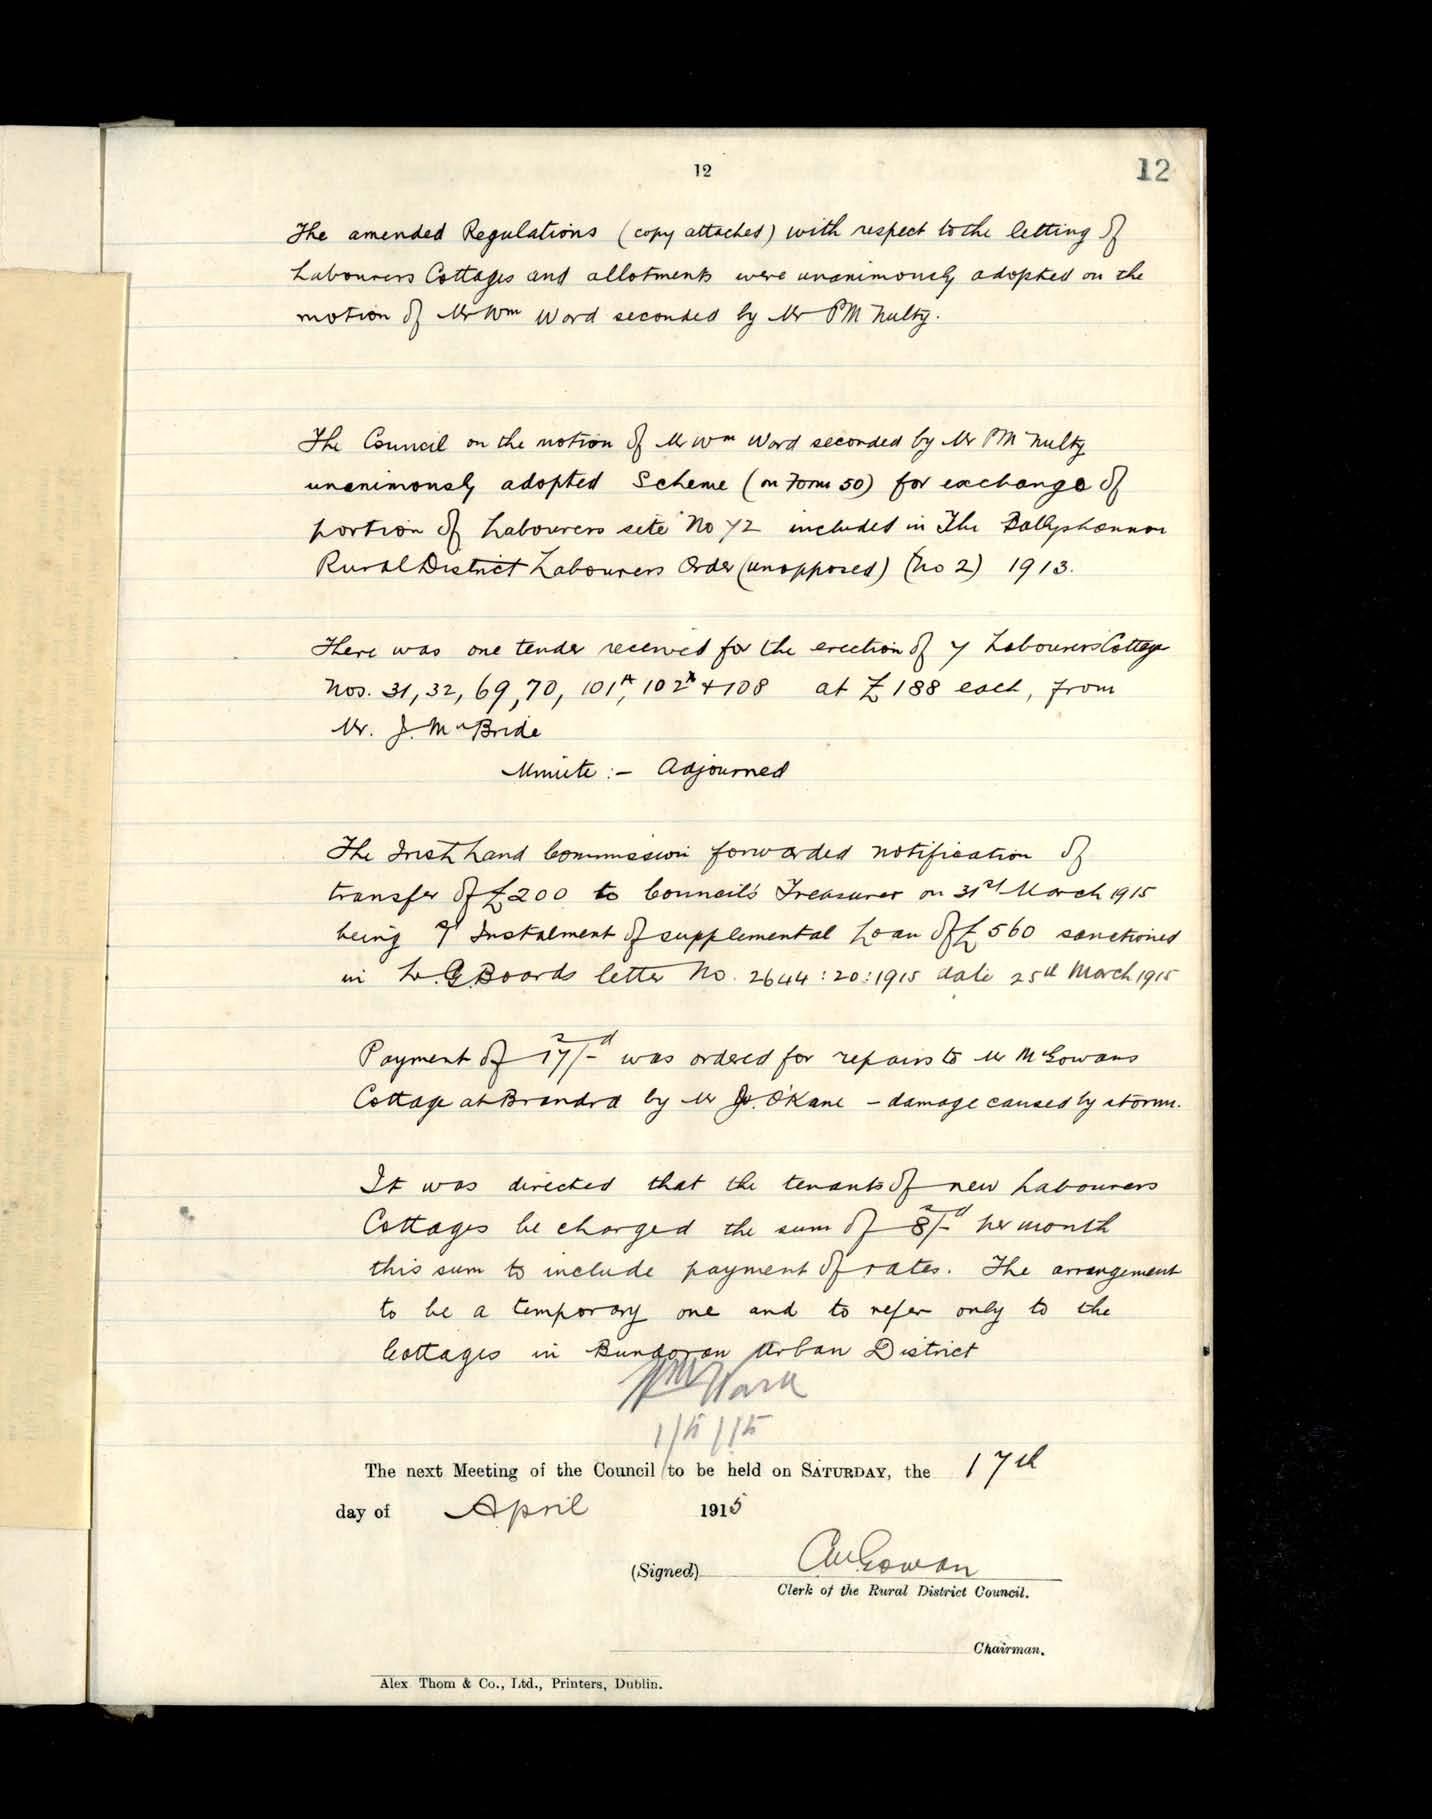 12
12
The amended Regulations (copy attached) with respect to the letting of
Labourers Cottages and allotments were unanimously adopted on the
motion of Mr Wm Ward seconded by Mr P McNulty.
The Council on the motion of Mr Wm Ward seconded by Mr P McNulty
unanimously adopted Scheme (on Form 50) for exchange of
portion of Labourers site No 72 included in The Ballyshannon
Rural District Labourers Order (unopposed) (No 2) 1913.
There was one tender received for the erection of 7 Labourers Cottage
Nos. 31, 32, 69, 70, 101A, 102A + 108 at £188 each, from
Mr. J. McBride
Minute :- Adjourned
The Irish Land Commission forwarded notification of
transfer of £200 to Council's Treasurer on 31st March 1915
being Instalment of supplemental Loan of £560 sanctioned
in L.G.Boards letter No. 2644:20:1915 date 25th March 1915
Payment of 17s/-d was ordered for repairs to Mr McGowans
Cottage at by Mr O'Kane - damage caused by storm.
It was directed that the tenants of new Labourers
Cottages be charged the sum of 8s/-d per month
this sum to include payment of rates. The arrangement
to be a temporary one and to refer only to the
Cottages in Bundoran Urban District
Wm Ward
1/5/15
The next Meeting of the Council to be held on SATURDAY, the 17th
day of April 1915
(Signed) C McGowan
Clerk of the Rural District Council.
Chairman.
Alex Thom & Co., Ltd., Printers, Dublin.